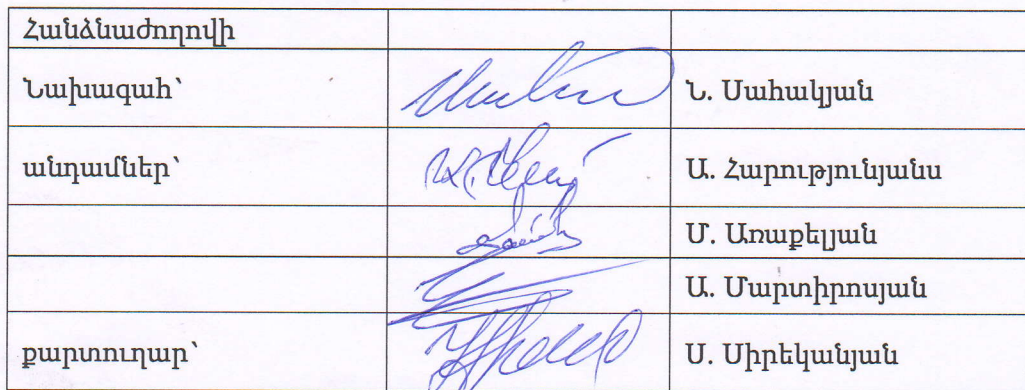 Հանձնաժողովի
Նախագահ՝ Ն. Սահակյան
անդամներ՝ Ա. Հարությունյանս
Մ. Առաքելյան
Ա. Մարտիրոսյան
քարտուղար՝ Ս. Սիրեկանյան